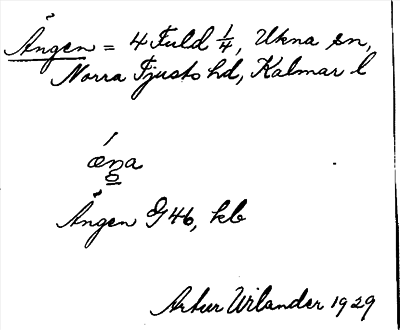 Ängen = 4 Fuld ¼, Ukna sn,
Norra Tjusts hd, Kalmar l
Ängen G46, kb
Artur Wilander 1929